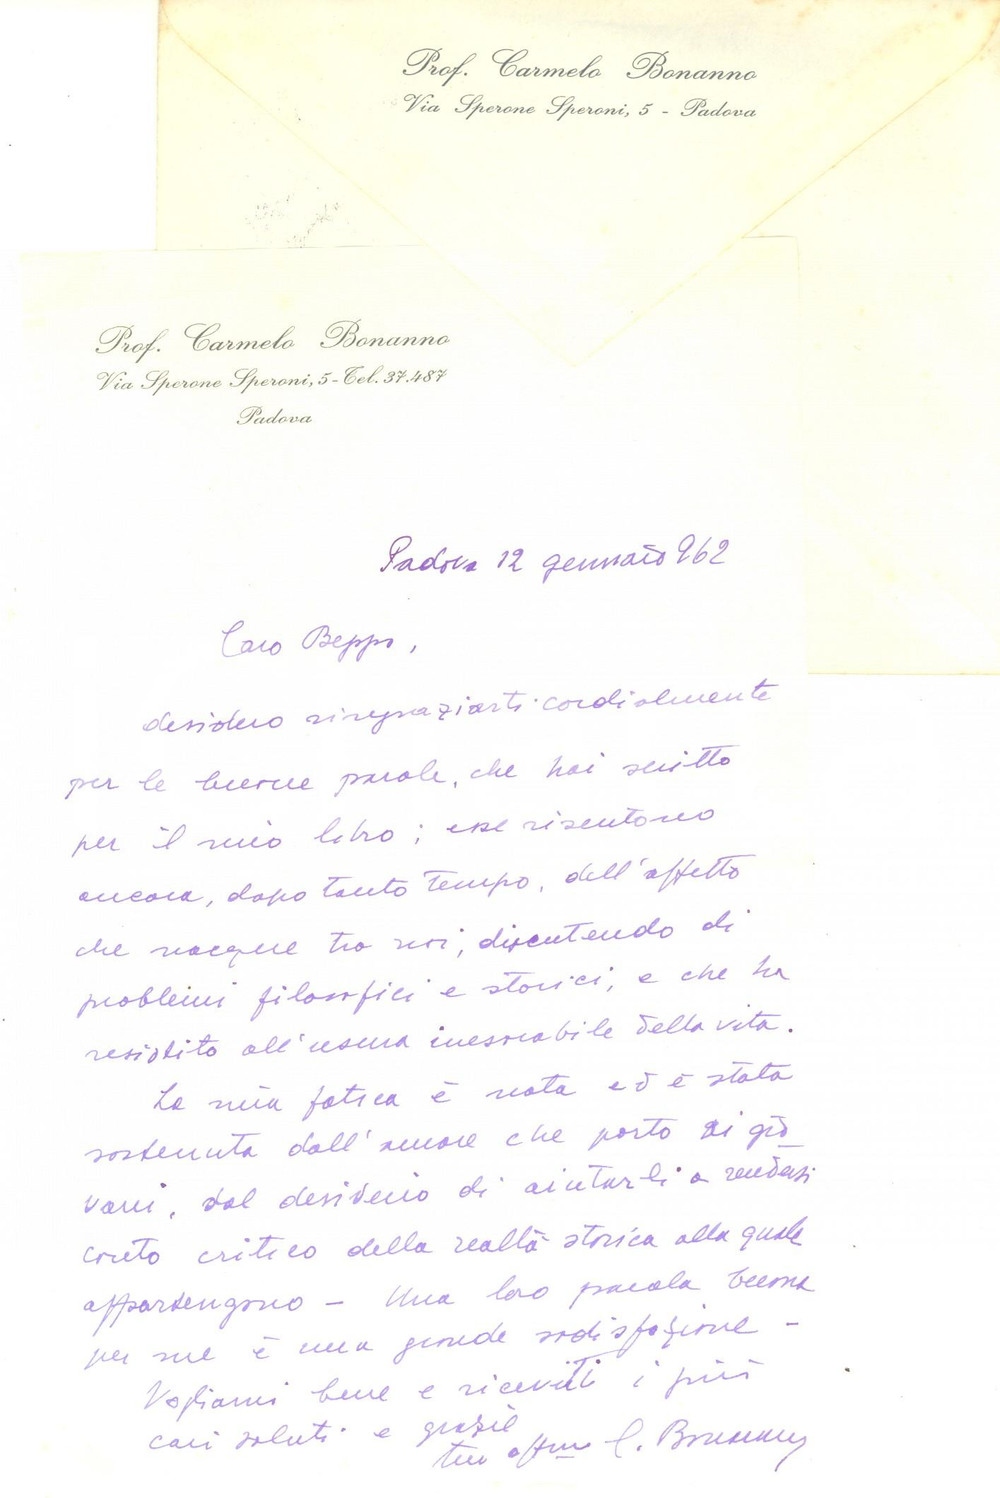 Prof. Carmelo Bonanno
Via Sperone Speroni, 5 - Padova
Prof. Carmelo Bonanno
Via Sperone Speroni, 5-Tel. 37.487
Padova
Padova 12 gennaio 962
Caro Beppo,
desidero ringraziarti cordialmente
per le buone parole, che hai scritto
per il mio libro; esse risentono
ancora, dopo tanto tempo, dell'affetto
che nacque tra noi, discutendo di
problemi filosofici e storici, e che ha
resistito all'usura inesorabile della vita.
La mia fatica è nata ed è stata
sostenuta dall'amore che porto ai gio
vani, dal desiderio di aiutarli a rendersi
conto critico della realtà storica alla quale
appartengono - Una loro parola buona
per me è una grande sodisfazione -
Vogliami bene e ricevi i più
cari saluti e grazie
tuo affmo C. Bonanno